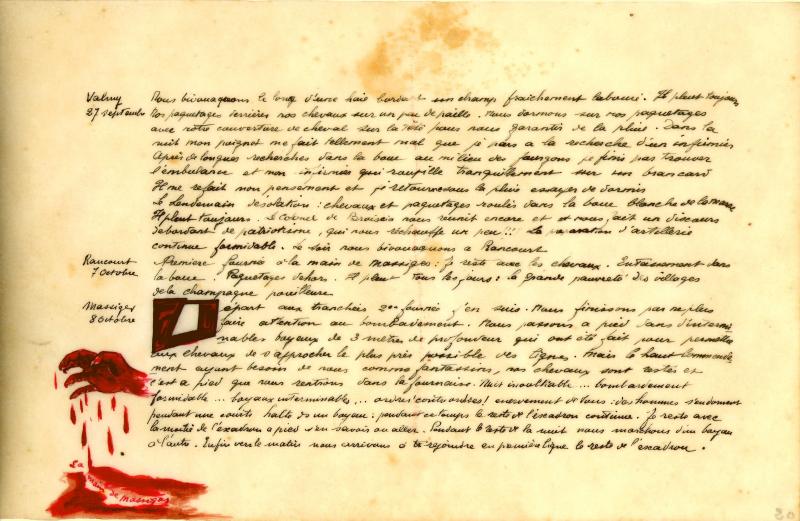 Valmy
27 septembre
Nous bivouaquons le long d'une haie bordant un champ fraîchement labouré. Il pleut toujours
Nos paquetages derrières nos chevaux sur un peu de paille. Nous dormons sur nos paquetages
avec notre couverture de cheval sur la tête pour nous garantir de la pluie. Dans la
nuit mon poignet me fait tellement mal que je pars a la recherche d'un infirmier
Après de longues recherches dans la boue au milieu des fourgons je finis par trouver
l'embulance et mon infirmier qui roupille tranquillement sur son brancard
Il me refait mon pensement et je retourne sous la pluie essayer de dormir
Le lendemain désolation : chevaux et paquetages roulés dans la boue blanche de la marne
Il pleut toujours. Le colonel de nous réunit encore et nous fait un discours
débordant de patriotisme, qui nous réchauffe un peu !! La préparation d'artillerie
continue formidable. Le soir nous bivouaquons a Rancourt
Rancourt
7 octobre
Première fournée à la main de Massiges : je reste avec les chevaux. Entassement dans
la boue. Paquetages dehors. Il pleut tous les jours : la grande pauvreté des villages
de la champagne pouilleuse
Massiges
8 octobre
Départ aux tranchées 2me fournée j'en suis. Nous finissons par ne plus
faire attention au bombardement. Nous passons a pied dans d'intermi
nables boyaux de 3 mètres de profondeur qui ont été fait pour permettre
aux chevaux de s'approcher le plus près possible des lignes. Mais le haut commande
ment ayant besoin de nous comme fantassins, nos chevaux sont restés et
c'est a pied que nous rentrons dans la fournaise. Nuit inoubliable... bombardement
formidable... boyaux interminables... ordres! contrordres! enervement de tous : des hommes s'endorment
pendant une courte halte dans un boyau : pendant ce temps le reste de l'éxadron continue. Je reste avec
la moitié de l'éxadron a pied sans savoir ou aller. Pendant le reste de la nuit nous marchons d'un boyau
à l'autre. Enfin vers le matin nous arrivons à rejoindre en première ligne le reste de l'exadron.
La
main de Massiges
20